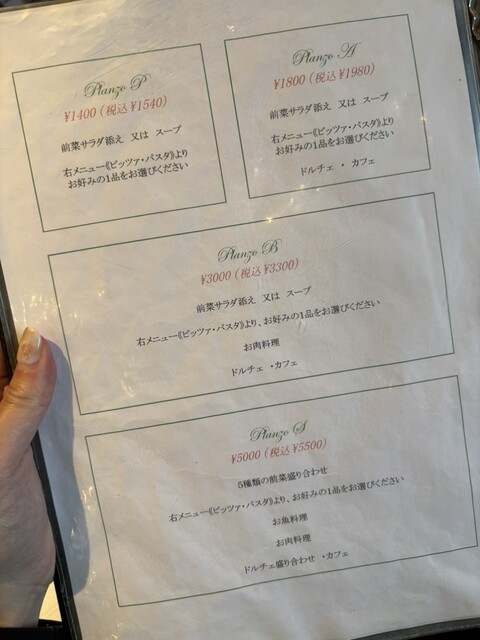 Planzo P
¥1400（税込 ¥1540）
前菜サラダ添え 又は スープ
右メニュー《ピッツァ・パスタ》より
お好みの1品をお選びください
Planzo A
¥1800（税込 ¥1980）
前菜サラダ添え 又は スープ
右メニュー《ピッツァ・パスタ》より
お好みの1品をお選びください
ドルチェ ・ カフェ
Planzo B
¥3000（税込 ¥3300）
前菜サラダ添え 又は スープ
右メニュー《ピッツァ・パスタ》より、お好みの1品をお選びください
お肉料理
ドルチェ ・カフェ
Planzo S
¥5000（税込 ¥5500）
5種類の前菜盛り合わせ
右メニュー《ピッツァ・パスタ》より、お好みの1品をお選びください
お魚料理
お肉料理
ドルチェ盛り合わせ ・カフェ